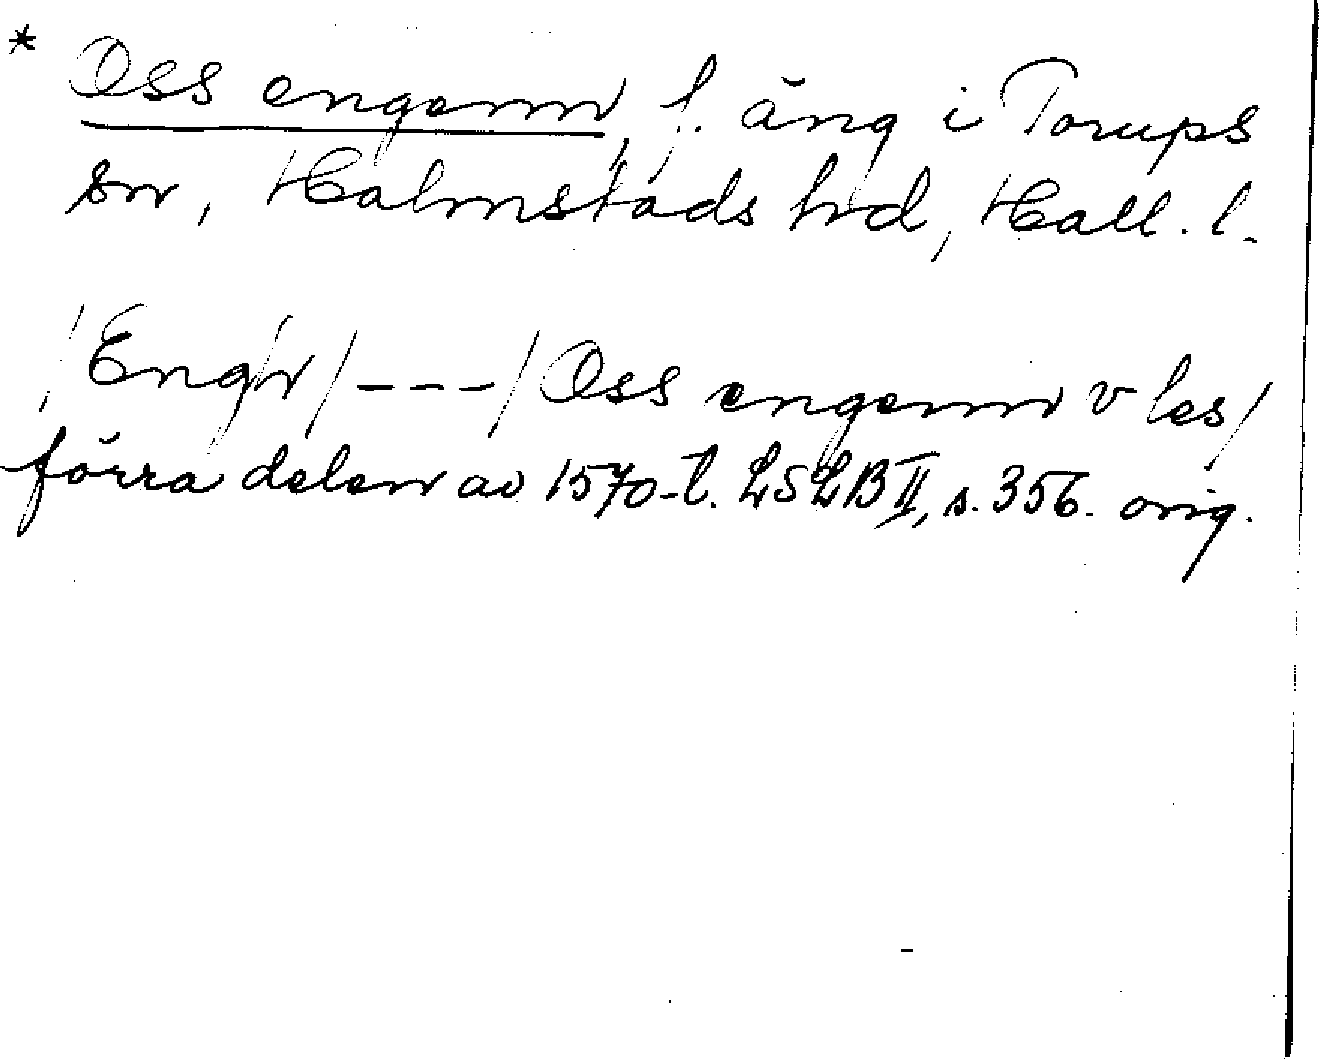 * Oss engenn, f. äng i Torups
sn, Halmstads hd, Hall. l.
/Engn/ --- / Oss engenn v les/
förra delen av 1570-t. LSLB II, s. 356. orig.